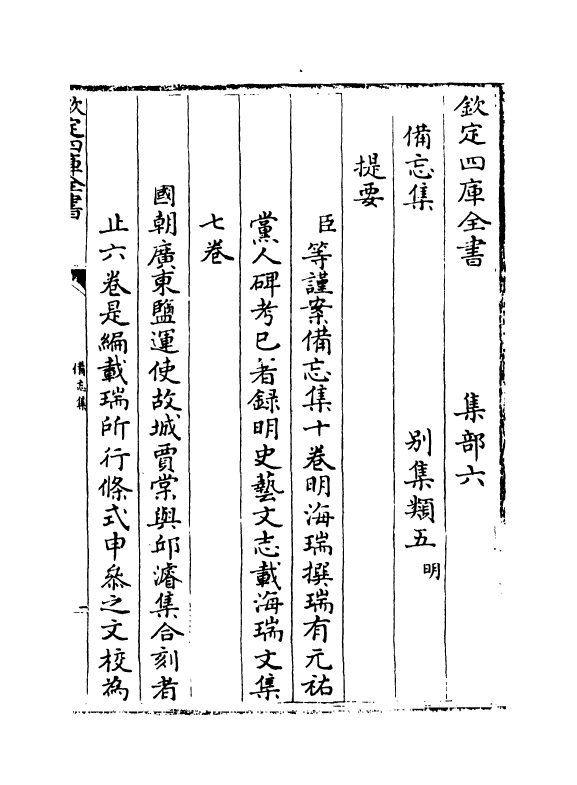 欽定四庫全書　集部六
備忘集　別集類五明
提要
臣等謹案備忘集十卷明海瑞撰瑞有元祐
黨人碑考已著録明史藝文志載海瑞文集
七卷
國朝廣東鹽運使故城賈棠與邱濬集合刻者
止六卷是編載瑞所行條式申叅之文校為
欽定四庫全書
備忘集
一